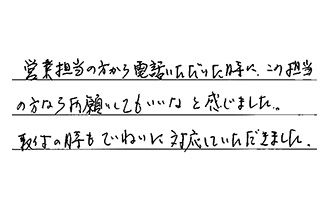 営業担当の方から電話いただいた時に、この担当
の方ならお願いしてもいいなと感じました。
取付の時もていねいに対応していただきました。